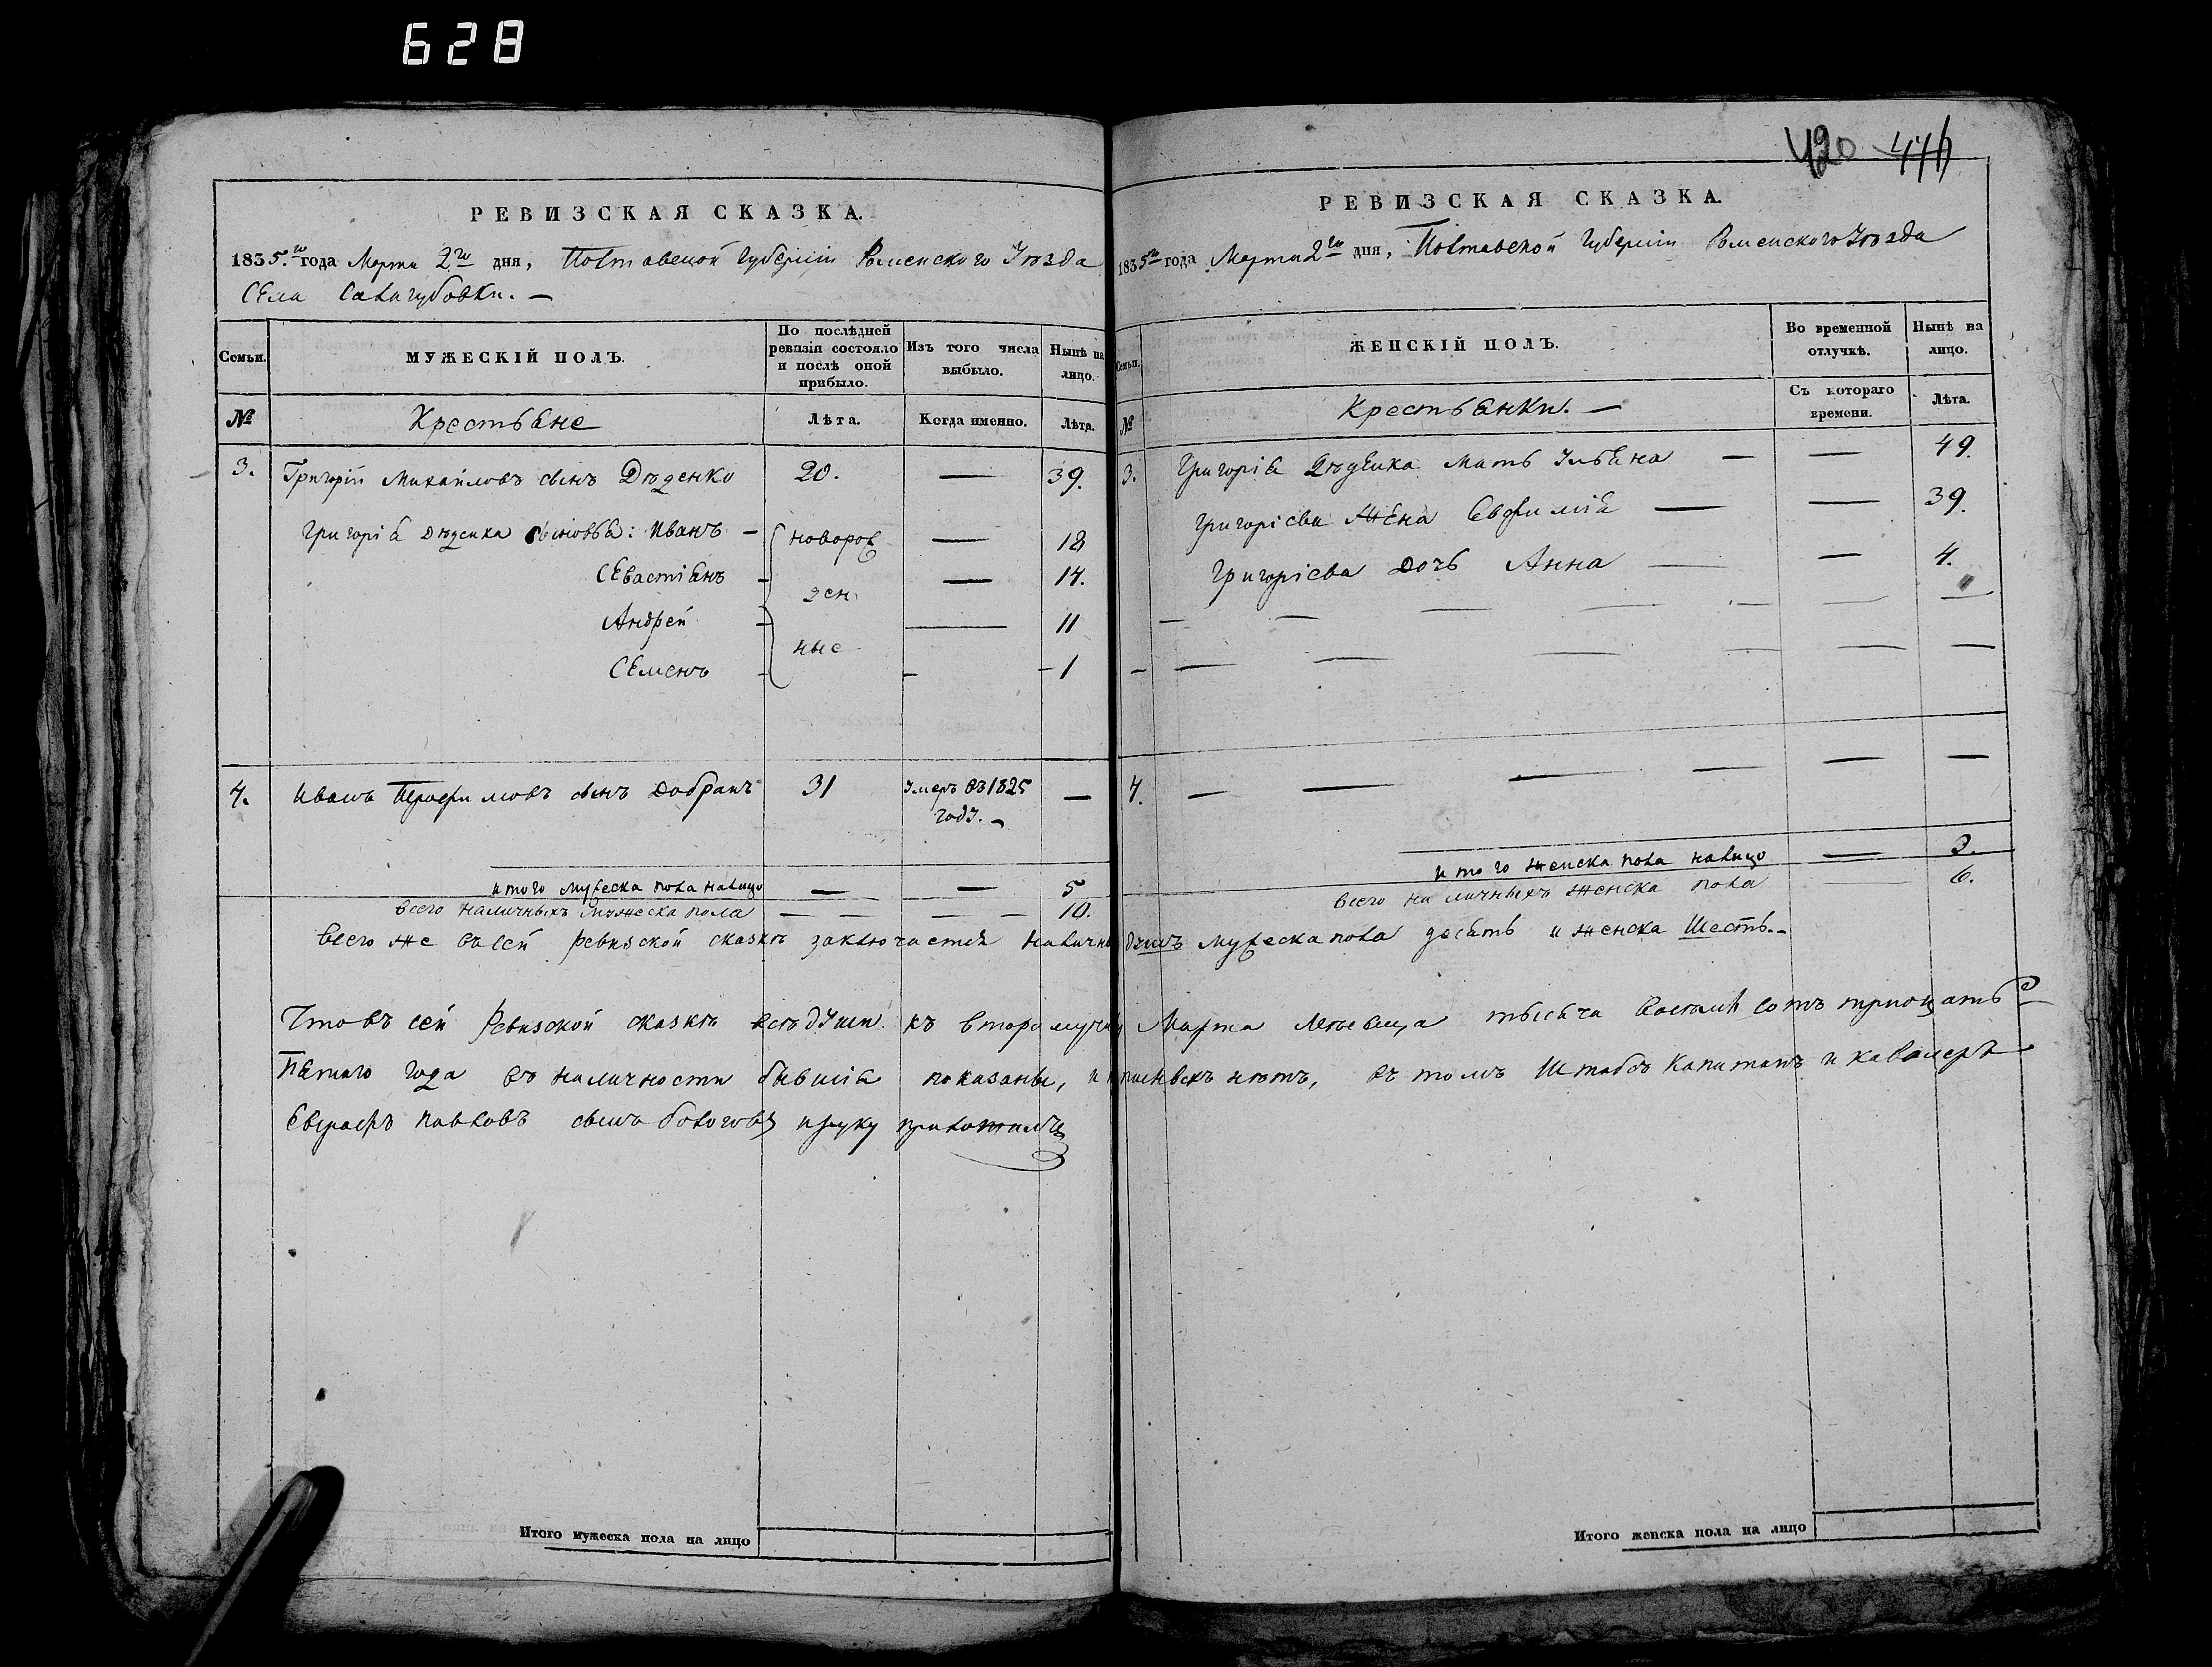 628
420 446
РЕВИЗСКАЯ СКАЗКА.
1835.го года Марта 2го дня, Полтавской Губерніи Роменскаго Уѣзда
Села
МУЖЕСКІЙ ПОЛЪ.
Семьи.
По послѣдней ревизіи состояло и послѣ оной прибыло.
Изъ того числа выбыло.
Нынѣ на лицо.
№ Крестьяне Лѣта. Когда именно. Лѣта.
3. Григорій Михайловъ сынъ Дѣденко 20. — 39.
Григорія Дѣденка сыновья: Иванъ — новорож — 18
Севастіянъ — 14.
ден
Андрей — 11
ные
Семенъ — 1
4. Иванъ сынъ Добранъ 31 Умеръ въ 1825 —
году. —
итого мужеска пола налицо — — 5
Всего наличныхъ мужеска пола — — — — 10.
РЕВИЗСКАЯ СКАЗКА.
1835го года Марта 2го дня, Полтавской Губерніи Роменскаго Уѣзда
Семьи.
ЖЕНСКІЙ ПОЛЪ.
Во временной отлучкѣ.
Нынѣ на лицо.
№ Крестьянки. — Съ котораго времени. Лѣта.
3. Григорія Дѣденка мать Ульяна — — 49.
Григоріева жена Евфимія — — 39.
Григоріева дочь Анна — — 4.
4. — — — — — —
итого женска пола налицо — 3.
Всего наличныхъ женска пола — 6.
Всего же въ сей ревизской сказкѣ заключается наличныхъ душъ мужеска пола десять и женска шесть. —
Что въ сей Ревизской сказкѣ всѣ души къ второму числу Марта мѣсяца тысяча восемь сотъ тридцать
Пятаго года въ наличности бывшія показаны, и нѣтъ, въ томъ Штабсъ Капитанъ и кавалеръ
Евграфъ Павловъ сынъ и руку приложилъ
Итого мужеска пола на лицо
Итого женска пола на лицо